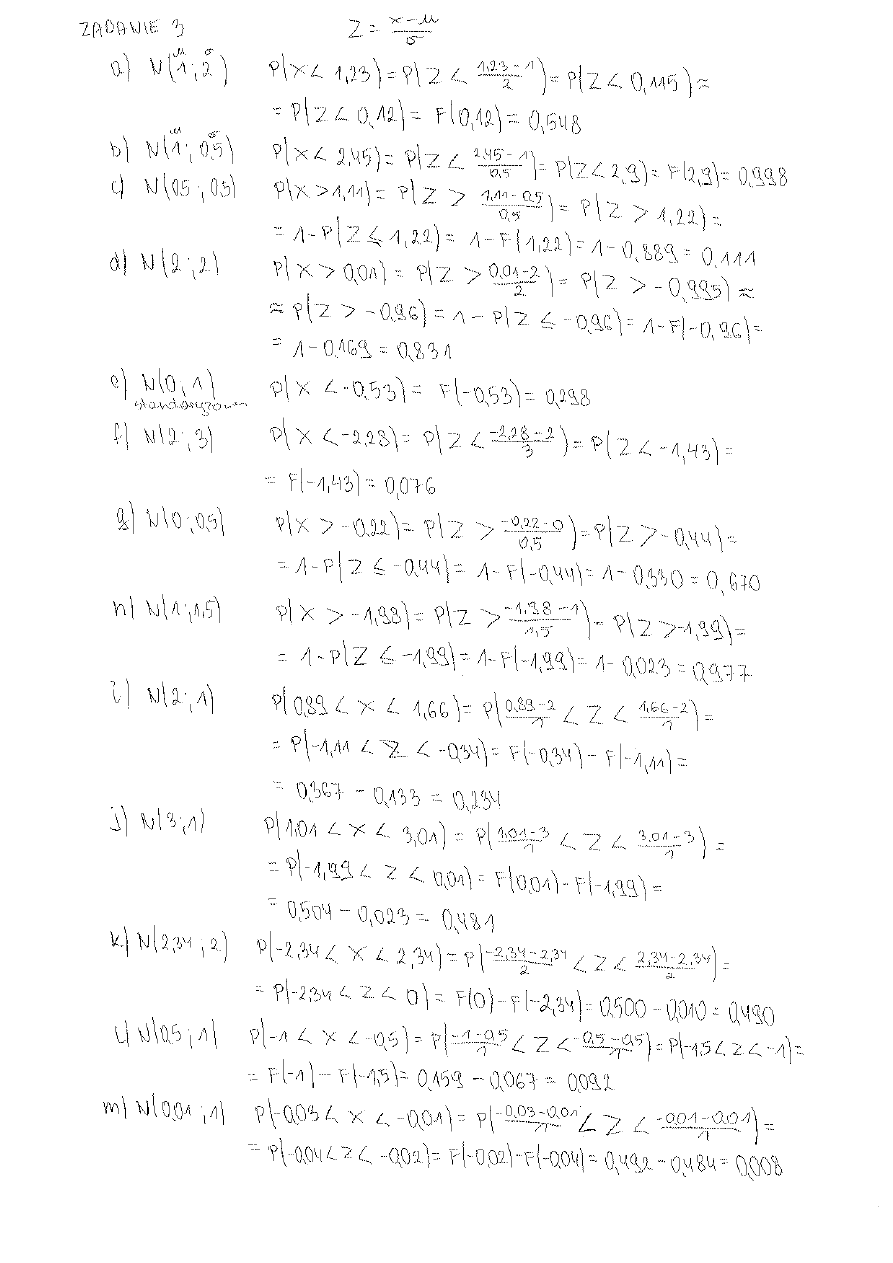 ZADANIE 3 Z = (x-μ)/σ
a) N(1; 2) P(X < 1,23) = P(Z < (1,23-1)/2) = P(Z < 0,115) ≈
= P(Z < 0,12) = F(0,12) = 0,548
b) N(1; 0,5) P(X < 2,45) = P(Z < (2,45-1)/0,5) = P(Z < 2,9) = F(2,9) = 0,998
c) N(0,5; 0,5) P(X > 1,11) = P(Z > (1,11-0,5)/0,5) = P(Z > 1,22) =
= 1 - P(Z ≤ 1,22) = 1 - F(1,22) = 1 - 0,889 = 0,111
d) N(2; 2) P(X > 0,01) = P(Z > (0,01-2)/2) = P(Z > -0,995) ≈
≈ P(Z > -0,96) = 1 - P(Z ≤ -0,96) = 1 - F(-0,96) =
= 1 - 0,169 = 0,831
e) N(0, 1) P(X < -0,53) = F(-0,53) = 0,298
f) N(2; 3) P(X < -2,28) = P(Z < (-2,28-2)/3) = P(Z < -1,43) =
= F(-1,43) = 0,076
g) N(0; 0,5) P(X > -0,22) = P(Z > (-0,22-0)/0,5) = P(Z > -0,44) =
= 1 - P(Z ≤ -0,44) = 1 - F(-0,44) = 1 - 0,330 = 0,670
h) N(1; 1,5) P(X > -1,98) = P(Z > (-1,98-1)/1,5) = P(Z > -1,99) =
= 1 - P(Z ≤ -1,99) = 1 - F(-1,99) = 1 - 0,023 = 0,977
i) N(2; 1) P(0,89 < X < 1,66) = P((0,89-2)/1 < Z < (1,66-2)/1) =
= P(-1,11 < Z < -0,34) = F(-0,34) - F(-1,11) =
= 0,367 - 0,133 = 0,234
j) N(3; 1) P(1,01 < X < 3,01) = P((1,01-3)/1 < Z < (3,01-3)/1) =
= P(-1,99 < Z < 0,01) = F(0,01) - F(-1,99) =
= 0,504 - 0,023 = 0,481
k) N(2,34; 2) P(-2,34 < X < 2,34) = P((-2,34-2,34)/2 < Z < (2,34-2,34)/2) =
= P(-2,34 < Z < 0) = F(0) - F(-2,34) = 0,500 - 0,010 = 0,490
l) N(0,5; 1) P(-1 < X < -0,5) = P((-1-0,5)/1 < Z < (-0,5-0,5)/1) = P(-1,5 < Z < -1) =
= F(-1) - F(-1,5) = 0,159 - 0,067 = 0,092
m) N(0,01; 1) P(-0,03 < X < -0,01) = P((-0,03-0,01)/1 < Z < (-0,01-0,01)/1) =
= P(-0,04 < Z < -0,02) = F(-0,02) - F(-0,04) = 0,492 - 0,484 = 0,008